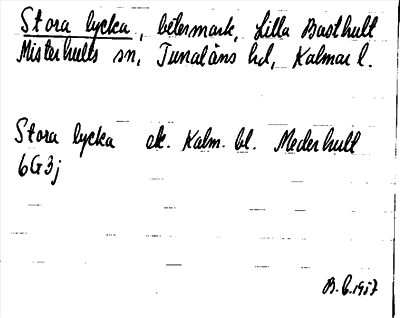 Stora lycka, betesmark, Lilla Basthult
Misterhults sn, Tunaläns hd, Kalmar l.
Stora lycka ek. Kalm. bl. Mederhult
6G3j
B.G. 1957